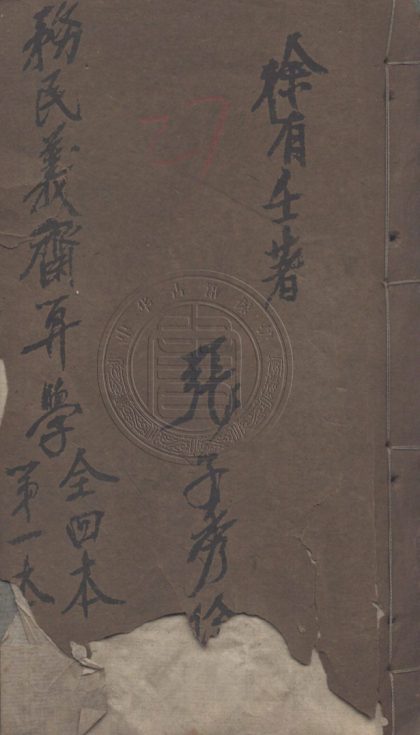 徐有壬著
張子秀
務民義齋算學
全四本
第一本